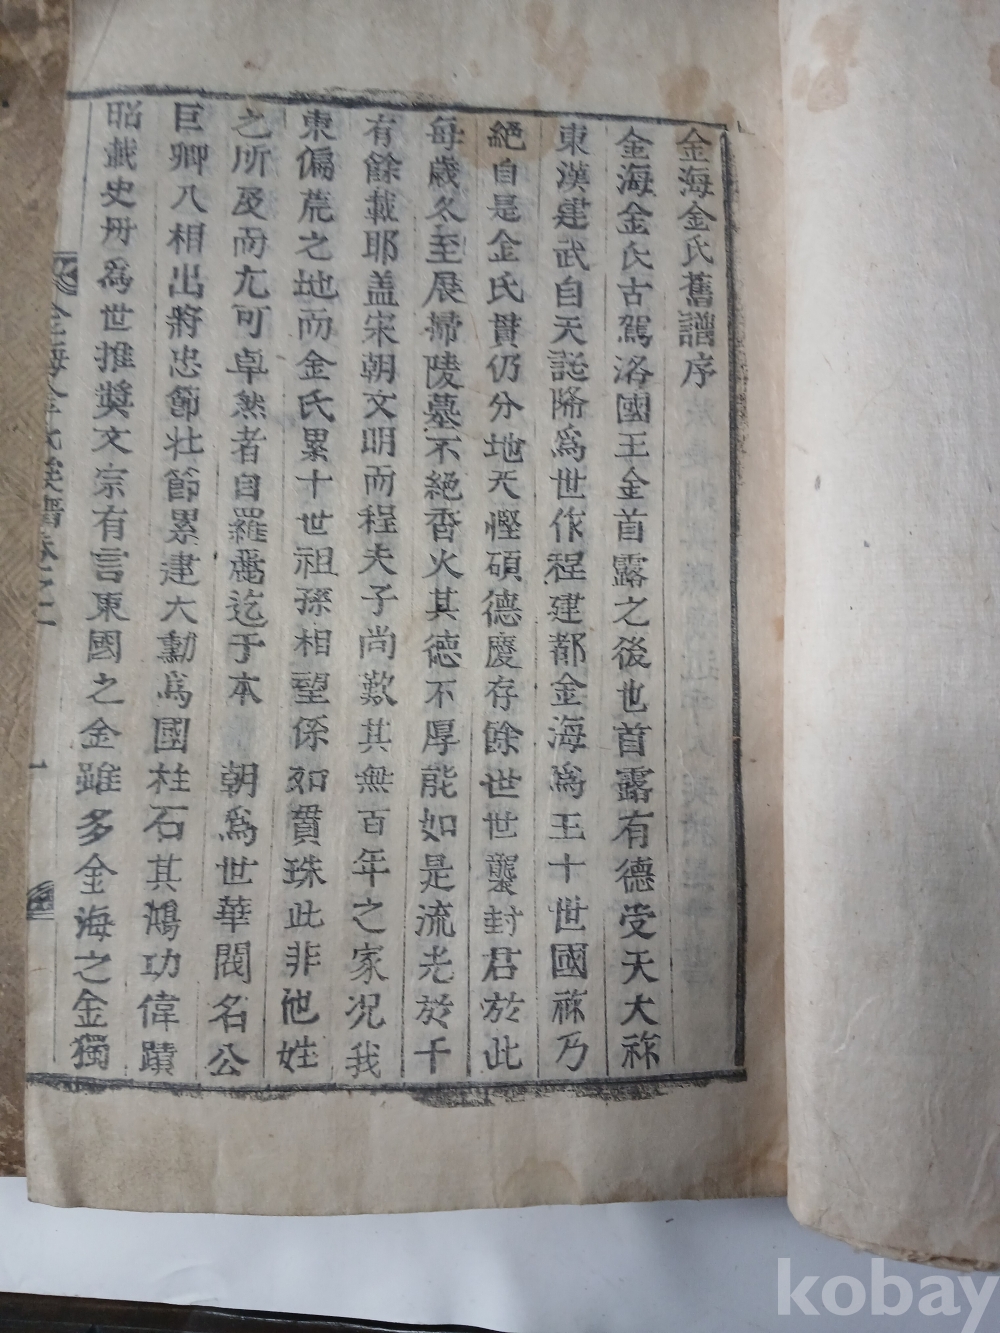 金海金氏舊譜序
金海金氏古駕洛國王金首露之後也首露有德受天大祚
東漢建武自天誕降爲世作程建都金海爲王十世國祚乃
絕自是金氏貫仍分地天慳碩德慶存餘世世襲封君於此
每歲冬至展掃陵墓不絕香火其德不厚能如是流光於千
有餘載耶盖宋朝文明而程夫子尙歎其無百年之家况我
東偏荒之地而金氏累十世祖孫相望係如貫珠此非他姓
之所及而尤可卓然者自羅麗迄于本 朝爲世華閥名公
巨卿入相出將忠節壯節累建大勳爲國柱石其鴻功偉蹟
昭載史册爲世推奬文宗有言東國之金雖多金海之金獨
金海金氏族譜卷之一
一
kobay